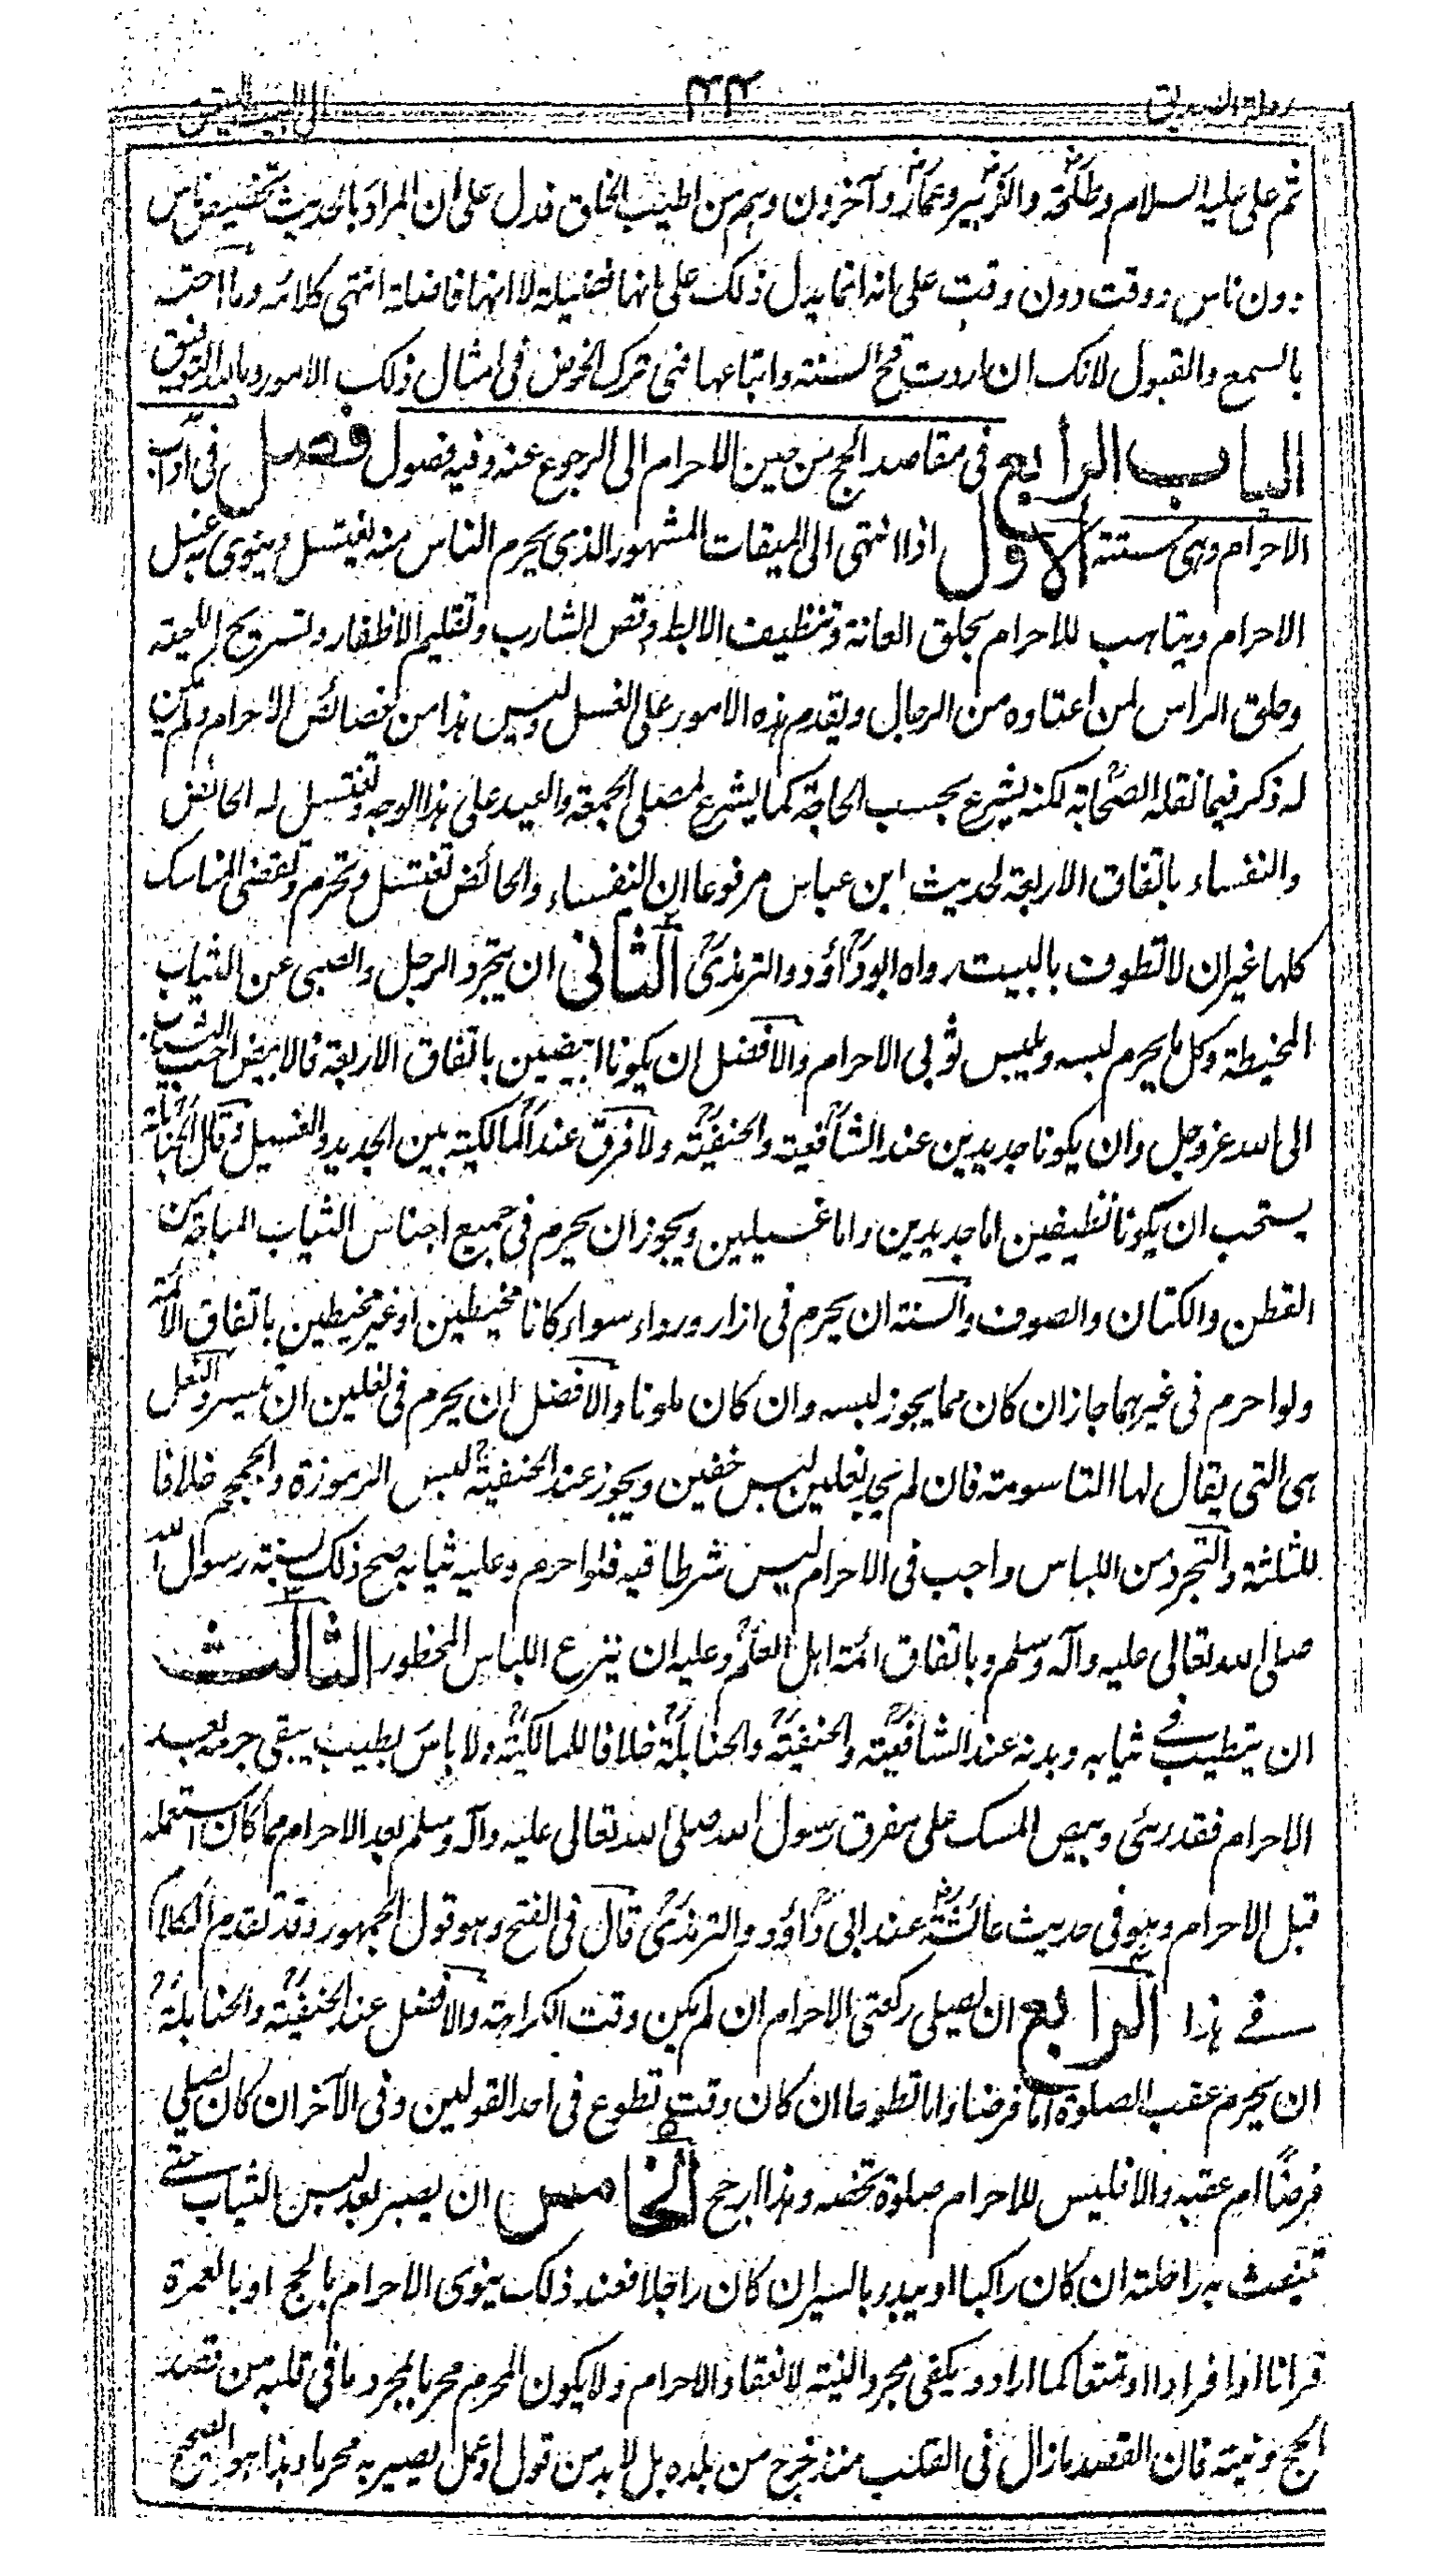 رحلة الصديق ٤٤ الى البيت العتيق
ثم على عليه السلام وطلحة والزبير وعمار وآخرون وهم من اطيب الخلق فدل على ان المراد بالحديث تخصيص ناس
دون ناس ووقت دون وقت على انه انما يدل ذلك على انها فضيلة لا انها فاضلة انتهى كلامه وما احقه
بالسمع والقبول لانك ان اردت قح السنة واتباعها فهى ترك الخوض فى امثال ذلك الامور وبالله التوفيق
الباب الرابع فى مقاصد الحج من حين الاحرام الى الرجوع عنه وفيه فصول فصل فى آداب
الاحرام وهى ستة الاول اذا انتهى الى الميقات المشهور الذى يحرم الناس منه يغتسل وينوى به غسل
الاحرام ويتاهب للاحرام بحلق العانة وتنظيف الابط وقص الشارب وتقليم الاظفار وتسريح اللحية
وحلق الراس لمن اعتاده من الرجال ويقدم هذه الامور على الغسل وليس هذا من خصائص الاحرام ولم يكن
له ذكر فيما نقله الصحابة لكنه يشرع بحسب الحاجة كما يشرع لمصلى الجمعة والعيد على هذا الوجه وتغتسل له الحائض
والنفساء باتفاق الاربعة لحديث ابن عباس مرفوعا ان النفساء والحائض تغتسل وتحرم وتقضى المناسك
كلها غير ان لا تطوف بالبيت رواه ابو داؤد والترمذى الثانى ان يتجرد الرجل والصبى عن الثياب
المخيطة وكل ما يحرم لبسه ويلبس ثوبى الاحرام والافضل ان يكونا ابيضين باتفاق الاربعة فالابيض احب الثياب
الى الله عز وجل وان يكونا جديدين عند الشافعية والحنفية ولا فرق عند المالكية بين الجديد والغسيل وقال الحنابلة
يستحب ان يكونا نظيفين اما جديدين واما غسيلين ويجوز ان يحرم فى جميع اجناس الثياب المباحة من
القطن والكتان والصوف والسنة ان يحرم فى ازار ورداء سواء كانا مخيطين او غير مخيطين باتفاق الائمة
ولو احرم فى غيرهما جاز ان كان مما يجوز لبسه وان كان ملونا والافضل ان يحرم فى نعلين ان تيسر والنعل
هى التى يقال لها التاسومة فان لم يجد نعلين لبس خفين ويجوز عند الحنفية لبس الزرموزة والجمجم خلافا
للثلثة والتجرد من اللباس واجب فى الاحرام ليس شرطا فيه فلو احرم وعليه ثيابه صح ذلك بسنة رسول الله
صلى الله تعالى عليه وآله وسلم وباتفاق ائمة اهل العلم وعليه ان ينزع اللباس المحظور الثالث
ان يتطيب فى ثيابه وبدنه عند الشافعية والحنفية والحنابلة خلافا للمالكية ولا باس بطيب يبقى جرمه بعد
الاحرام فقد رئى وبيص المسك على مفرق رسول الله صلى الله تعالى عليه وآله وسلم بعد الاحرام مما كان استعمله
قبل الاحرام وهو فى حديث عائشة عند ابى داؤد والترمذى قال فى الفتح وهو قول الجمهور وقد تقدم الكلام
فى هذا الرابع ان يصلى ركعتى الاحرام ان لم يكن وقت الكراهة والافضل عند الحنفية والحنابلة
ان يحرم عقب الصلوة اما فرضا واما تطوعا ان كان وقت تطوع فى احد القولين وفى الآخر ان كان يصلى
فرضًا احرم عقبه والا فليس للاحرام صلوة تخصه وهذا ارجح الخامس ان يصبر بعد لبس الثياب حتى
تنبعث به راحلته ان كان راكبا او يبدء بالسير ان كان راجلا فعند ذلك ينوى الاحرام بالحج او بالعمرة
قرانا او افرادا او تمتعا كما اراد ويكفى مجرد النية لانعقاد الاحرام ولا يكون المحرم محرما بمجرد ما فى قلبه من قصد
الحج ونيته فان القصد ما زال فى القلب منذ خرج من بلده بل لا بد من قول او عمل يصير به محرما وهذا هو الصحيح